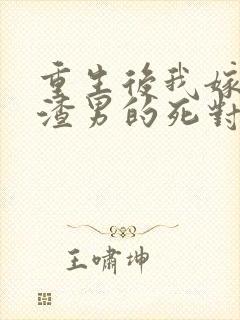 重生後我嫁
渣男的死對
王嘯坤